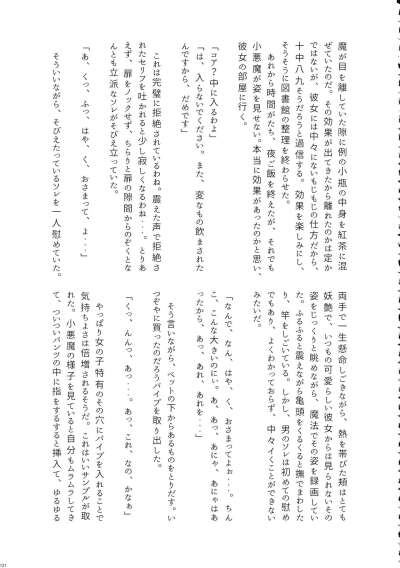 魔が目を離していた隙に例の小瓶の中身を紅茶に混
ぜていたのだ。その効果が出てきたから離れたのかは定か
ではないが、彼女には中々にないもじもじの仕方だから、
十中八九そうだろうと過信する。効果を楽しみにし、
そうそうに図書館の整理を終わらせた。
あれから時間がたち、夜ご飯を終えたが、それでも
小悪魔が姿を見せない。本当に効果があったのかと思い、
彼女の部屋に行く。
「コア？中に入るわよ」
「は、入らないでください。また、変なもの飲まされた
んですから、だめです」
これは完璧に拒絶されているわね。震えた声で拒絶さ
れたセリフを吐かれると少し寂しくなるわね...とりあ
えず、扉をノックせず、ちらりと扉の隙間からのぞくとな
んとも立派なソレがそびえ立っていた。
「あ、くっ、ふっ、はや、く、おさまって、よ...」
そういいながら、そびえたっているソレを一人慰めていた。
両手で一生懸命しごきながら、熱を帯びた頬はとても
妖艶で、いつもの可愛らしい彼女からは見られないその
姿をじっくりと眺めながら、魔法でその姿を録画してい
た。ふるふると震えながら亀頭をくるくると撫でまわした
り、竿をしごいている。しかし、男のソレは初めての慰め
でもあり、よくわかっておらず、中々イくことができない
みたいだ。
「なんで、なん、はや、く、おさまってよぉ...。ちん
こ、こんな大きいのにぃ。あ、あっ、あにゃ、あにゃはあ
ったから、あっ、あれ、あれを...」
そう言いながら、ベットの下からあるものをとりだす。い
つぞやに買ったのだろうバイブを取り出した。
「くっ、んんっ、あっ...。あっ、これ、なの、かなぁ」
やっぱり女の子特有のその穴にバイブを入れることで
気持ちよさは倍増されるそうだ。これはいいサンプルが取
れた。小悪魔の様子を見ていると自分もムラムラしてき
て、ついついパンツの中に指をするすると挿入て、ゆるゆる